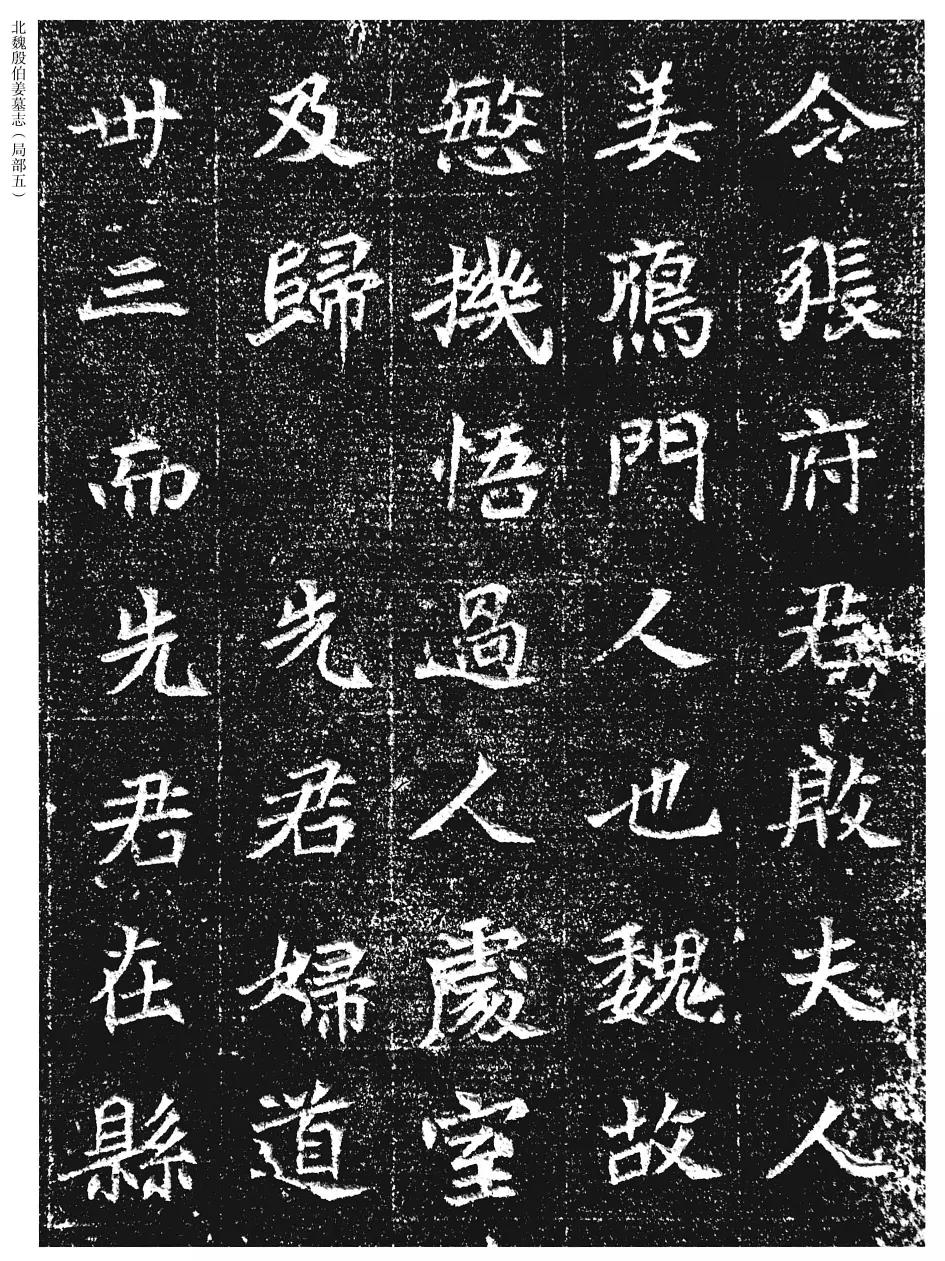 北魏殷伯姜墓志（局部五）
令張府君殷夫人
姜鴈門人也魏故
慜機悟過人處室
及歸先君婦道
卅三而先君在縣